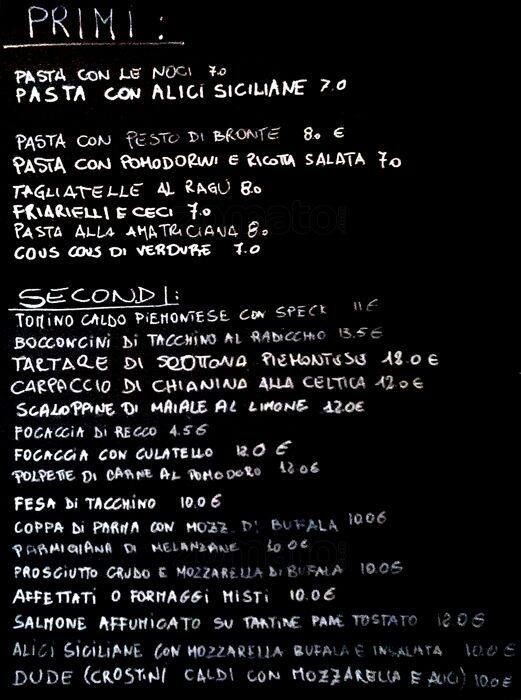 PRIMI:
PASTA CON LE NOCI 7.0
PASTA CON ALICI SICILIANE 7.0
PASTA CON PESTO DI BRONTE 8.0 €
PASTA CON POMODORINI E RICOTTA SALATA 7.0
TAGLIATELLE AL RAGÙ 8.0
FRIARIELLI E CECI 7.0
PASTA ALLA AMATRICIANA 8.0
COUS COUS DI VERDURE 7.0
SECONDI:
TOMINO CALDO PIEMONTESE CON SPECK 11 €
BOCCONCINI DI TACCHINO AL RADICCHIO 13.5 €
TARTARE DI SOTTONA PIEMONTESE 12.0 €
CARPACCIO DI CHIANINA ALLA CELTICA 12.0 €
SCALOPPINE DI MAIALE AL LIMONE 12.0 €
FOCACCIA DI RECCO 4.5 €
FOCACCIA CON CULATELLO 12.0 €
POLPETTE DI CARNE AL POMODORO 12.0 €
FESA DI TACCHINO 10.0 €
COPPA DI PARMA CON MOZZ. DI BUFALA 10.0 €
PARMIGIANA DI MELANZANE 10.0 €
PROSCIUTTO CRUDO E MOZZARELLA DI BUFALA 10.0 €
AFFETTATI O FORMAGGI MISTI 10.0 €
SALMONE AFFUMICATO SU TARTINE PANE TOSTATO 12.0 €
ALICI SICILIANE CON MOZZARELLA BUFALA E INSALATA 10.0 €
DUDE (CROSTINI CALDI CON MOZZARELLA E ALICI) 10.0 €